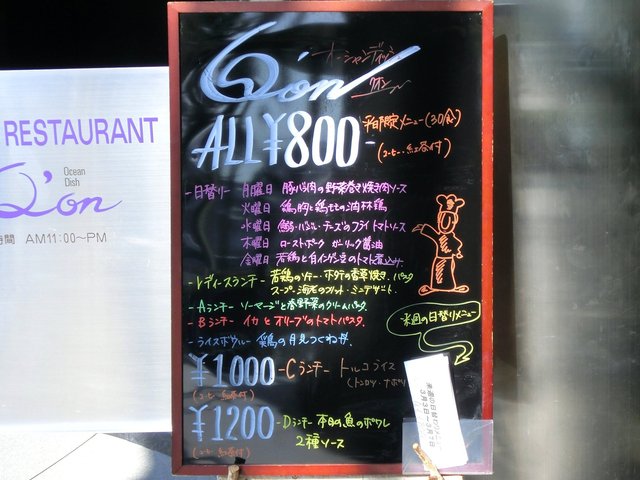 RESTAURANT
Ocean
Dish
Q'on
時間 AM11:00～PM
オーシャンディッシュ
Q'on
クオン
ALL¥800
平日限定メニュー(30食)
(コーヒー・紅茶付)
日替り 月曜日 豚バラ肉の野菜巻き焼き肉ソース
火曜日 鶏胸と鶏ももの油林鶏
水曜日 鰯・ハム・チーズのフライトマトソース
木曜日 ローストポーク ガーリック醤油
金曜日 若鶏と白インゲン豆のトマト煮込み
レディースランチー 若鶏のソテー・ホタテの香草焼き・パスタ
スープ・海老のフリット・ミニデザート
Aランチー ソーセージと春野菜のクリームパスタ
Bランチー イカとオリーブのトマトパスタ
ライスボウルー 鶏の月見つくね丼
来週の日替りメニュー
¥1000 -Cランチー トルコライス
(コーヒー・紅茶付)
(トンカツ・ナポリ
¥1200 -Dランチー 本日の魚のポワレ
2種ソース
(コーヒー・紅茶付)
来週の日替わり
3月3日～3月7日